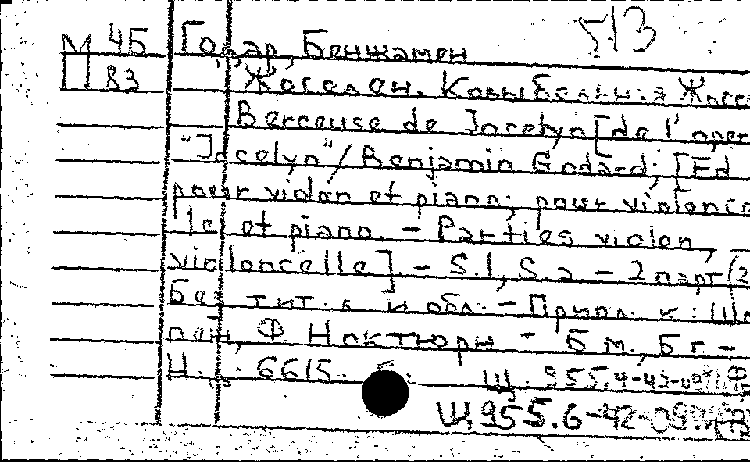 513
М 45 Годар, Бенжамен
П 83 "Жоселен. Колыбельная Жосе
Berceuse de Jocelyn [de l'oper
"Jocelyn" / Benjamin Godard; [Ed.
pour violon et piano; pour violonce
lle et piano. - Parties violon,
violoncelle]. - S.l., S.a. - 2 парт. (2
Без тит. л. и обл. - Припл. к: Шо
пен, Ф Ноктюрн - Б.м., Б.г. -
Н. 6615.
Ш 955.4-42-
Ш 955.6-42-